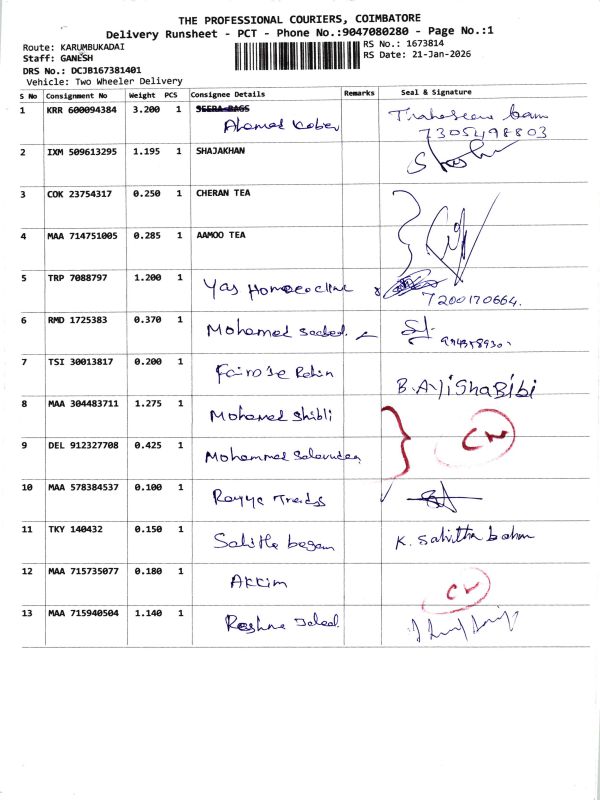 THE PROFESSIONAL COURIERS, COIMBATORE
Delivery Runsheet - PCT - Phone No.:9047080280 - Page No.:1
Route: KARUMBUKADAI
RS No.: 1673814
Staff: GANESH
RS Date: 21-Jan-2026
DRS No.: DCJB167381401
Vehicle: Two Wheeler Delivery
S No Consignment No Weight PCS Consignee Details Remarks Seal & Signature
1 KRR 600094384 3.200 1 SEERA BAGS
Ahamed Kaber
7305498803
2 IXM 509613295 1.195 1 SHAJAKHAN
3 COK 23754317 0.250 1 CHERAN TEA
4 MAA 714751005 0.285 1 AAMOO TEA
5 TRP 7088797 1.200 1 Yas Homeo 7200170664.
6 RMD 1725383 0.370 1 Mohamed
7 TSI 30013817 0.200 1 Fairose
B.AyiShaBibi
8 MAA 304483711 1.275 1 Mohamed Shibli
9 DEL 912327708 0.425 1 Mohammed
CN
10 MAA 578384537 0.100 1 Rayya
11 TKY 140432 0.150 1 Sabitha began K. Sabitha
12 MAA 715735077 0.180 1 Akkim CN
13 MAA 715940504 1.140 1 Reshna Jaleel